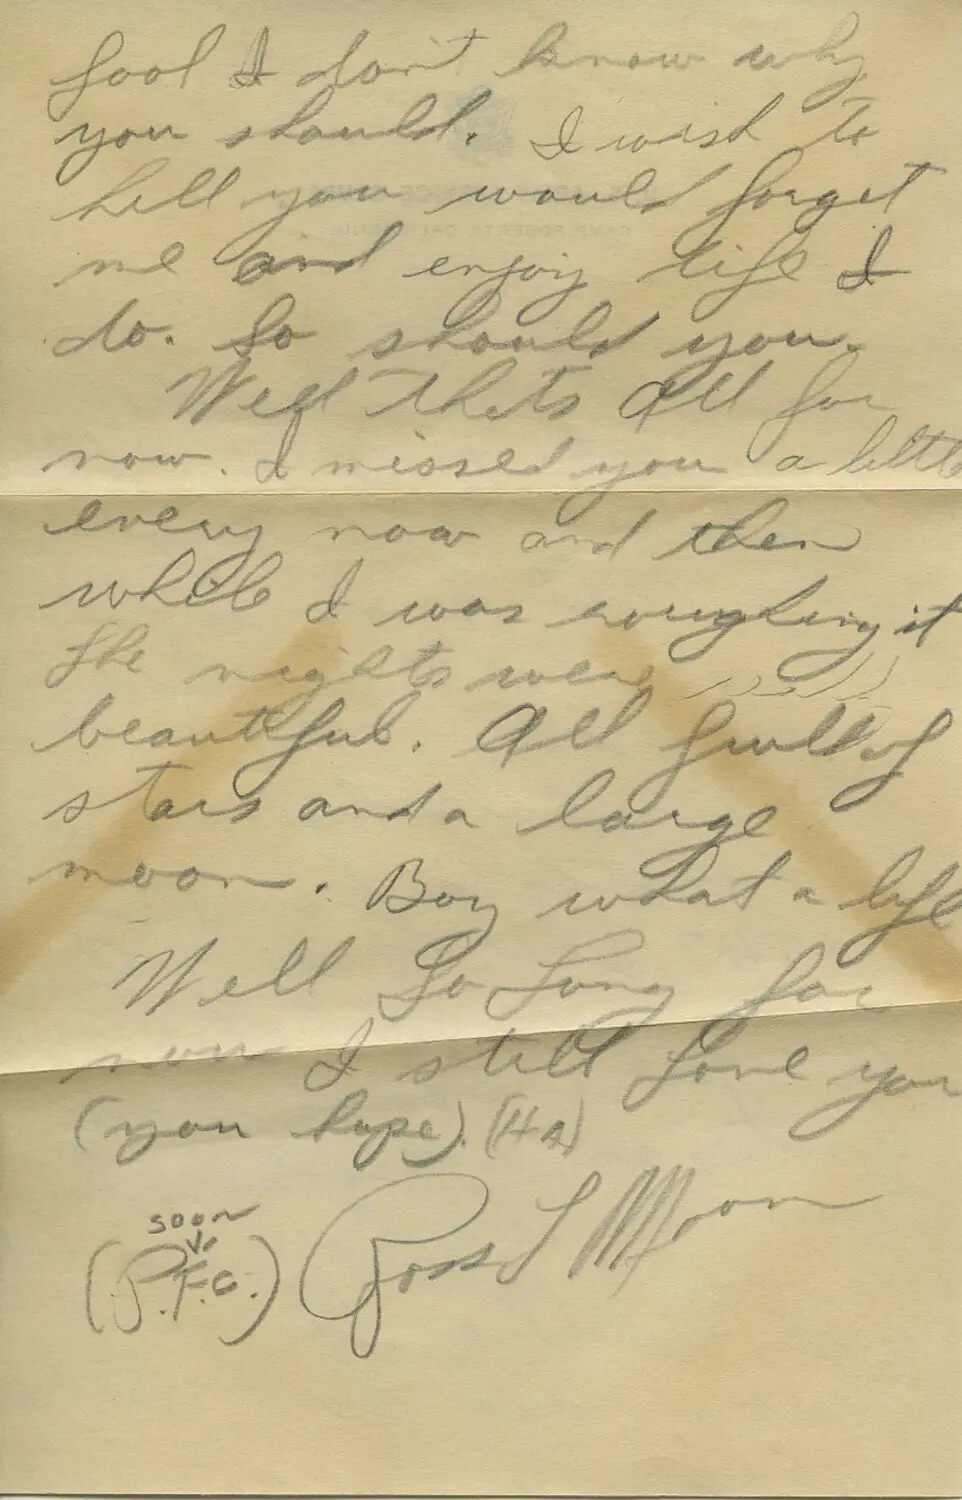 fool I don't know why
you should. I wish to
hell you would forget
me and enjoy life I
do. So should you.
Well thats all for
now. I missed you a little
every now and then
while I was roughing it
The nights were
beautiful. All full of
stars and a large
moon. Boy what a life
Well So Long for
now I still love you
(you hope). (Ha)
soon
(P.F.C.) Ross L Moon